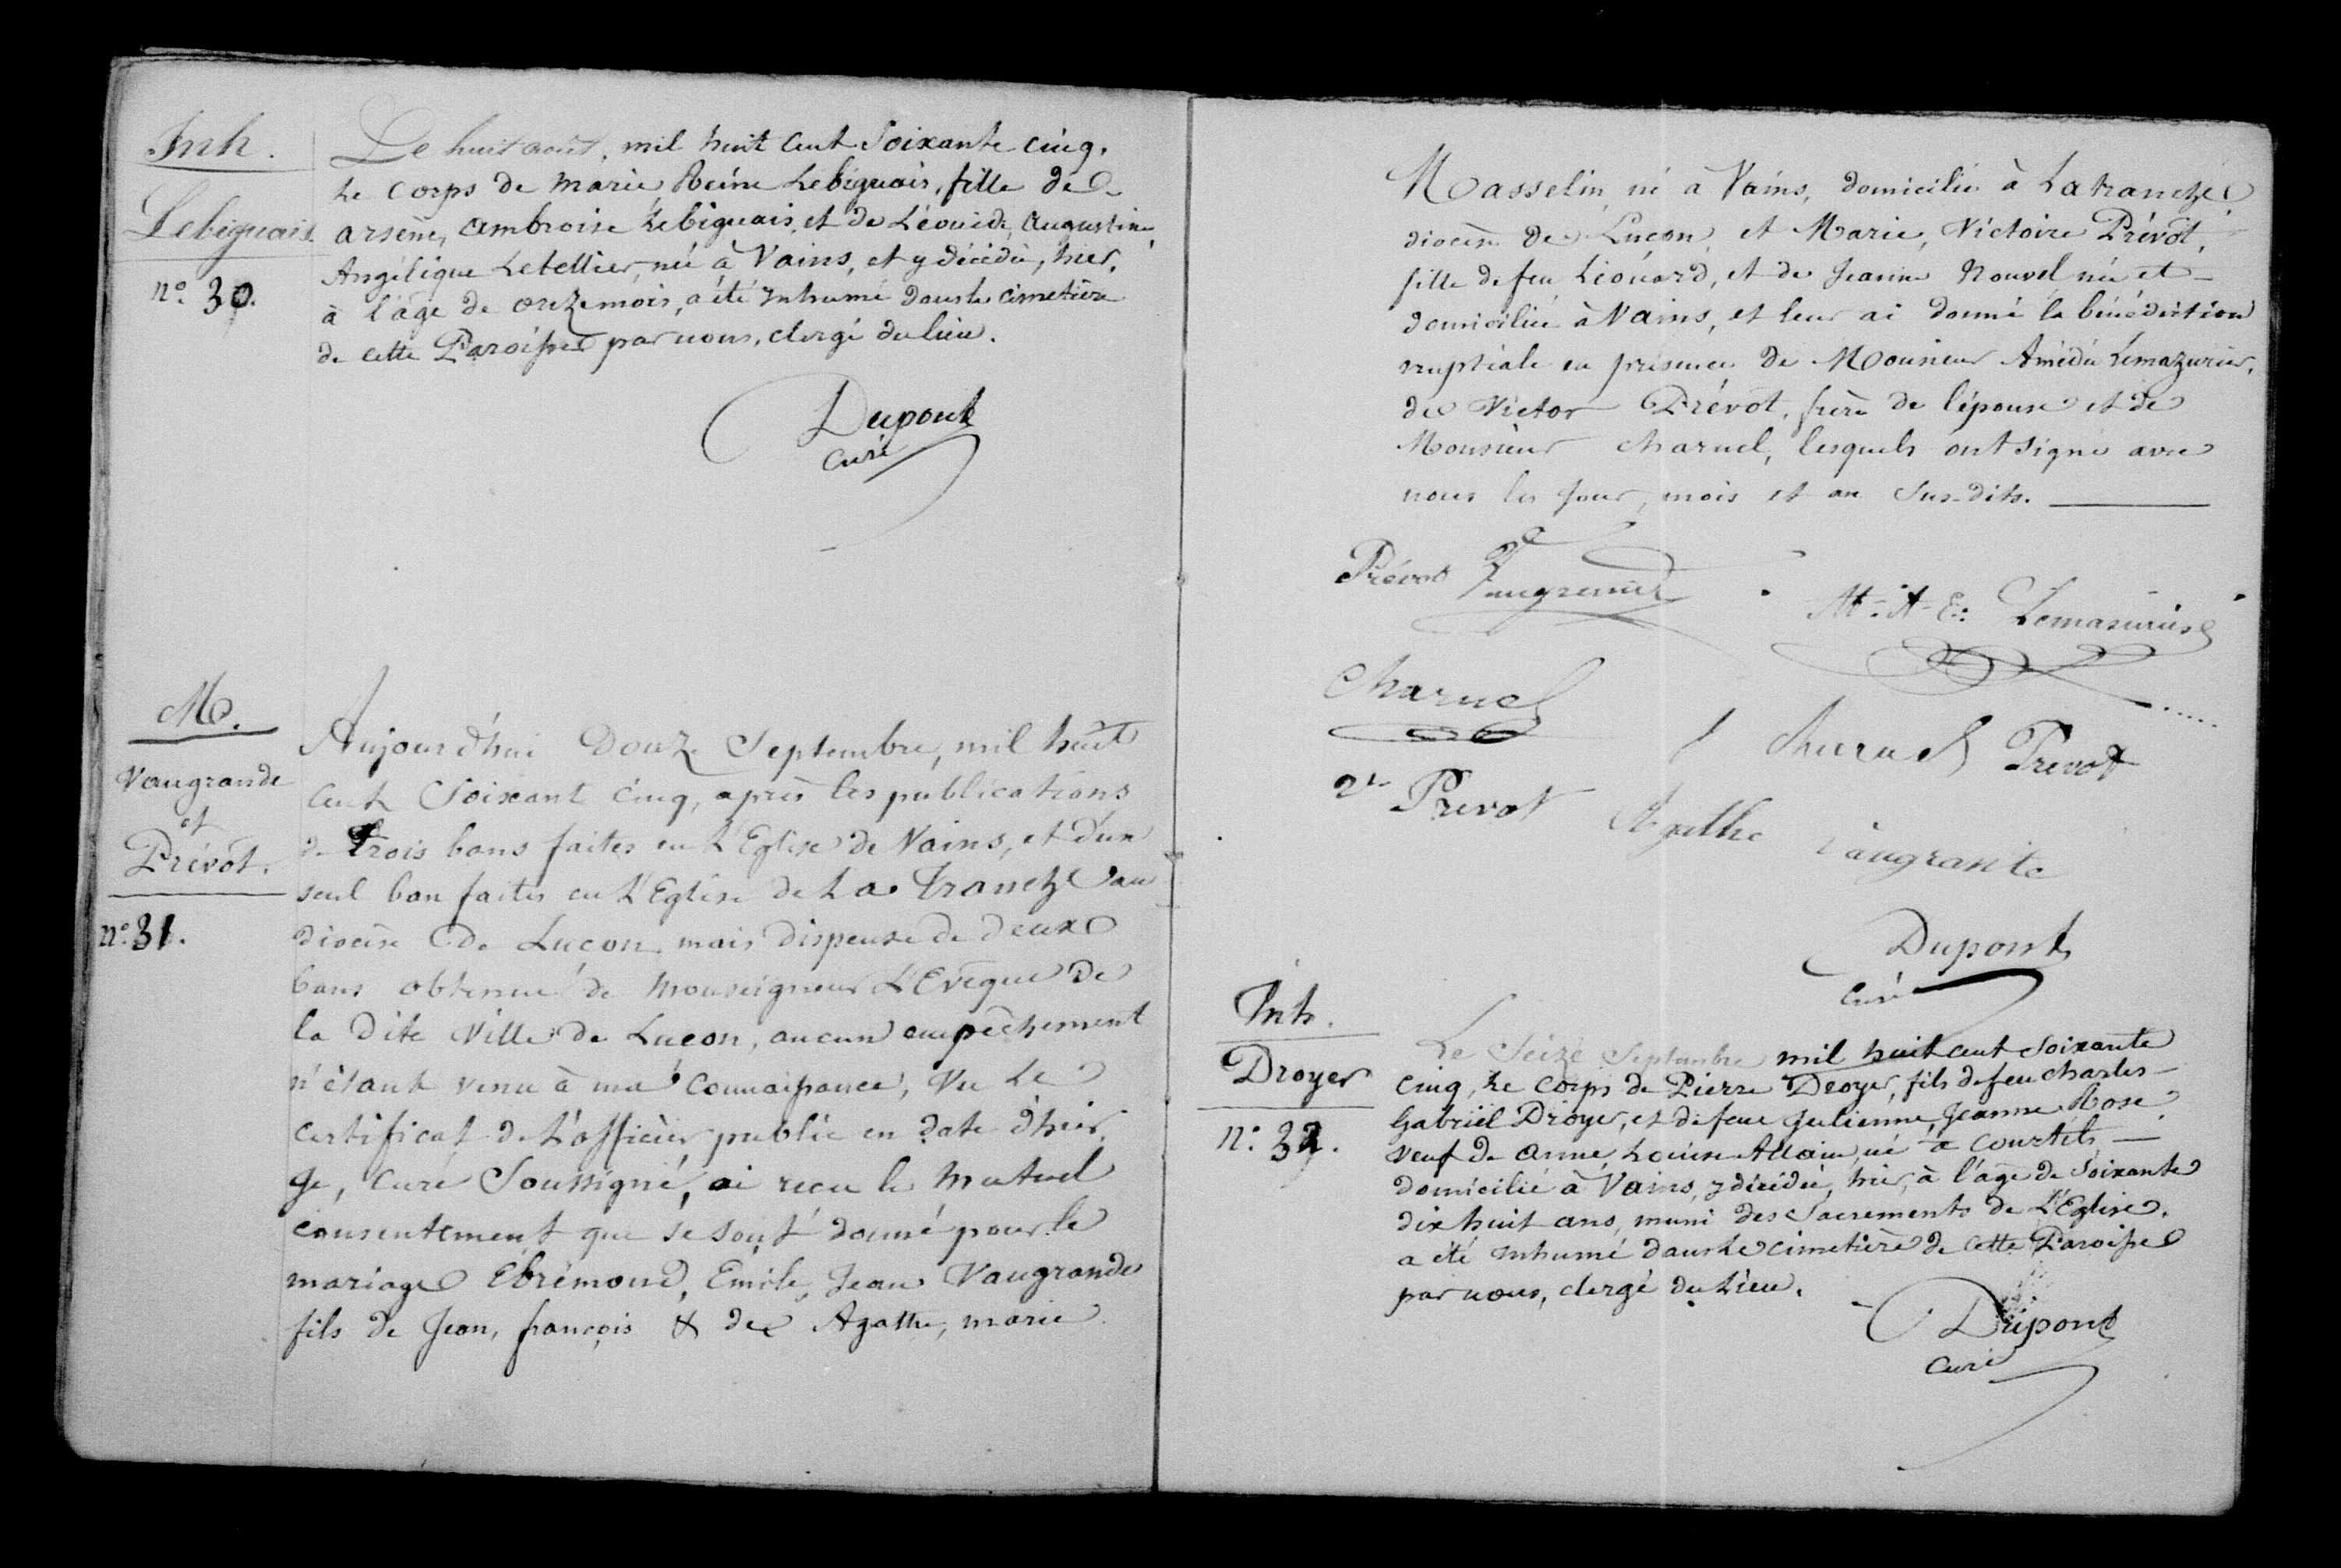 Inh.
Lebiguais.
n° 30.
Le huit août, mil huit cent Soixante cinq,
le corps de Marie, Reine Lebiguais, fille de
arsène, ambroise Lebiguais, et de Léonide, augustine,
Angélique Letellier, née à Vains, et y décédée, hier,
à l'âge de onze mois, a été inhumé dans le cimetière
de cette Paroisse par nous, clergé du lieu.
Dupont
curé
M.
Vaugrande
et
Prévôt.
n° 31.
Aujourd'hui Douze Septembre, mil huit
cent Soixante cinq, après les publications
de trois bans faites en L'Eglise de Vains, et d'un
seul ban faites en L'Eglise de La Tranche au
diocèse de Luçon, mais dispense de deux
bans obtenue de Monseigneur L'Evêque de
la dite Ville de Luçon, aucun empêchement
n'étant venu à ma connaissance, Vu le
certificat de L'officier public en date d'hier,
Je, Curé Soussigné, ai reçu le mutuel
consentement que se sont donné pour le
mariage Ebrémond, Emile, Jean Vaugrande
fils de Jean, françois & de Agathe, marie
Masselin, né à Vains, domicilié à La tranche,
diocèse de Luçon, et Marie, Victoire Prévôt,
fille de feu Léonard, et de Jeanne Nouvel née et
domiciliée à Vains, et leur ai donné la bénédiction
nuptiale en présence de Monsieur Amédée Lemazurier,
de Victor Prévôt, frère de l'épouse et de
Monsieur Charuel, lesquels ont signé avec
nous les jour, mois et an Sus-dits.
Prévot
Lemasurier
Charuel
Charuel Prevot
Prevot
Agathe Vaugrante
Dupont
Curé
Inh.
Droyer
n° 32.
Le Seize Septembre mil huit cent Soixante
cinq, Le corps de Pierre Droyer, fils de feu Charles
Gabriel Droyer, et de feue Julienne, Jeanne Rose,
veuf de anne, Louise Allain, né à Courtils,
domicilié à Vains, y décédé, hier, à l'âge de Soixante
dix huit ans, muni des Sacrements de L'Eglise,
a été inhumé dans le cimetière de cette Paroisse
par nous, clergé du Lieu.
Dupont
Curé